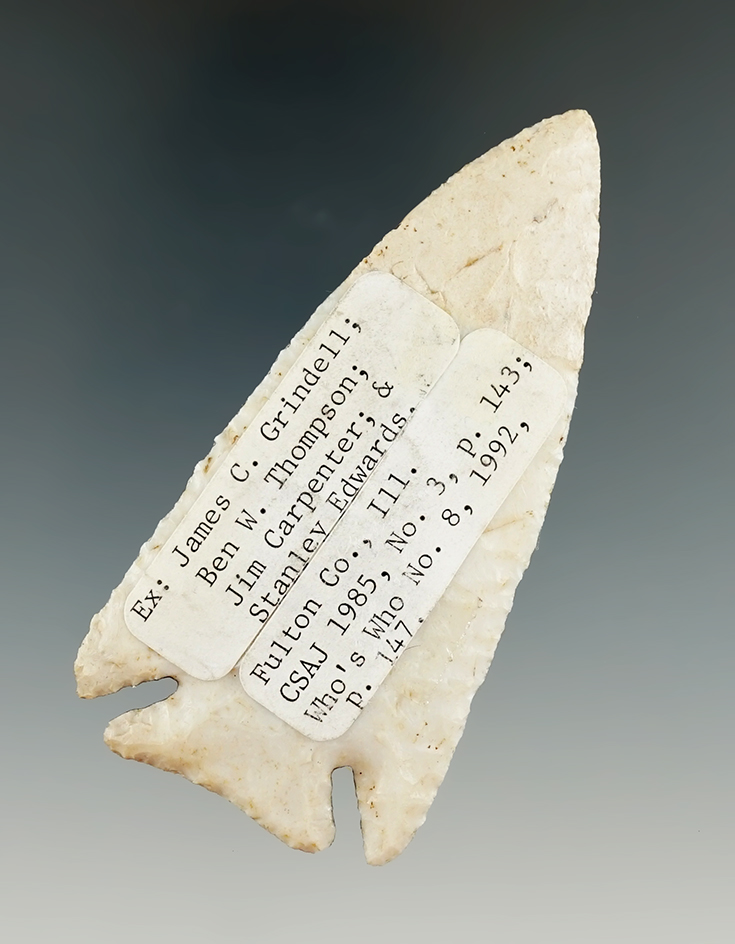 Ex: James C. Grindell;
Ben W. Thompson;
Jim Carpenter; &
Stanley Edwards.
Fulton Co., Ill.
CSAJ 1985, No. 3, p. 143;
Who's Who No. 8, 1992,
p. 147.